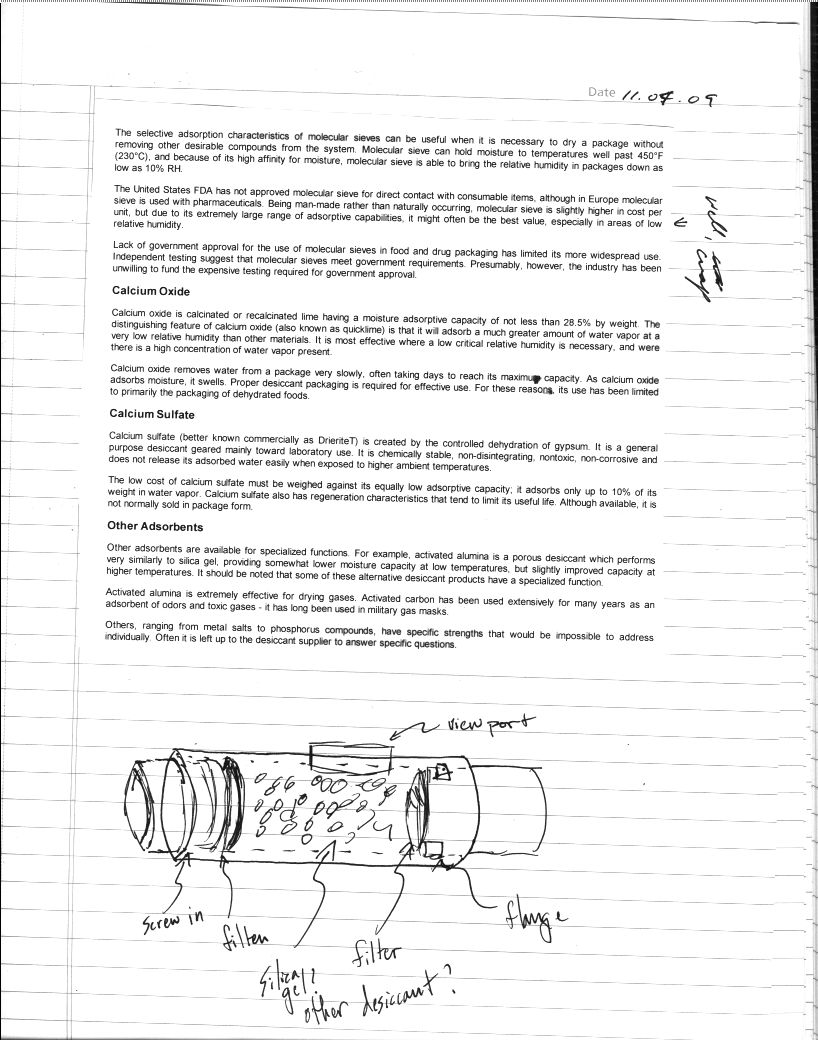 Date 11.04.09
The selective adsorption characteristics of molecular sieves can be useful when it is necessary to dry a package without
removing other desirable compounds from the system. Molecular sieve can hold moisture to temperatures well past 450°F
(230°C), and because of its high affinity for moisture, molecular sieve is able to bring the relative humidity in packages down as
low as 10% RH.
The United States FDA has not approved molecular sieve for direct contact with consumable items, although in Europe molecular
sieve is used with pharmaceuticals. Being man-made rather than naturally occurring, molecular sieve is slightly higher in cost per
unit, but due to its extremely large range of adsorptive capabilities, it might often be the best value, especially in areas of low
relative humidity.
well,
Lack of government approval for the use of molecular sieves in food and drug packaging has limited its more widespread use.
Independent testing suggest that molecular sieves meet government requirements. Presumably, however, the industry has been
unwilling to fund the expensive testing required for government approval.
Calcium Oxide
Calcium oxide is calcinated or recalcinated lime having a moisture adsorptive capacity of not less than 28.5% by weight. The
distinguishing feature of calcium oxide (also known as quicklime) is that it will adsorb a much greater amount of water vapor at a
very low relative humidity than other materials. It is most effective where a low critical relative humidity is necessary, and were
there is a high concentration of water vapor present.
Calcium oxide removes water from a package very slowly, often taking days to reach its maximum capacity. As calcium oxide
adsorbs moisture, it swells. Proper desiccant packaging is required for effective use. For these reasons, its use has been limited
to primarily the packaging of dehydrated foods.
Calcium Sulfate
Calcium sulfate (better known commercially as DrieriteT) is created by the controlled dehydration of gypsum. It is a general
purpose desiccant geared mainly toward laboratory use. It is chemically stable, non-disintegrating, nontoxic, non-corrosive and
does not release its adsorbed water easily when exposed to higher ambient temperatures.
The low cost of calcium sulfate must be weighed against its equally low adsorptive capacity; it adsorbs only up to 10% of its
weight in water vapor. Calcium sulfate also has regeneration characteristics that tend to limit its useful life. Although available, it is
not normally sold in package form.
Other Adsorbents
Other adsorbents are available for specialized functions. For example, activated alumina is a porous desiccant which performs
very similarly to silica gel, providing somewhat lower moisture capacity at low temperatures, but slightly improved capacity at
higher temperatures. It should be noted that some of these alternative desiccant products have a specialized function.
Activated alumina is extremely effective for drying gases. Activated carbon has been used extensively for many years as an
adsorbent of odors and toxic gases - it has long been used in military gas masks.
Others, ranging from metal salts to phosphorus compounds, have specific strengths that would be impossible to address
individually. Often it is left up to the desiccant supplier to answer specific questions.
viewport
screw in
filter
flange
filter
silica
gel?
other desiccant?